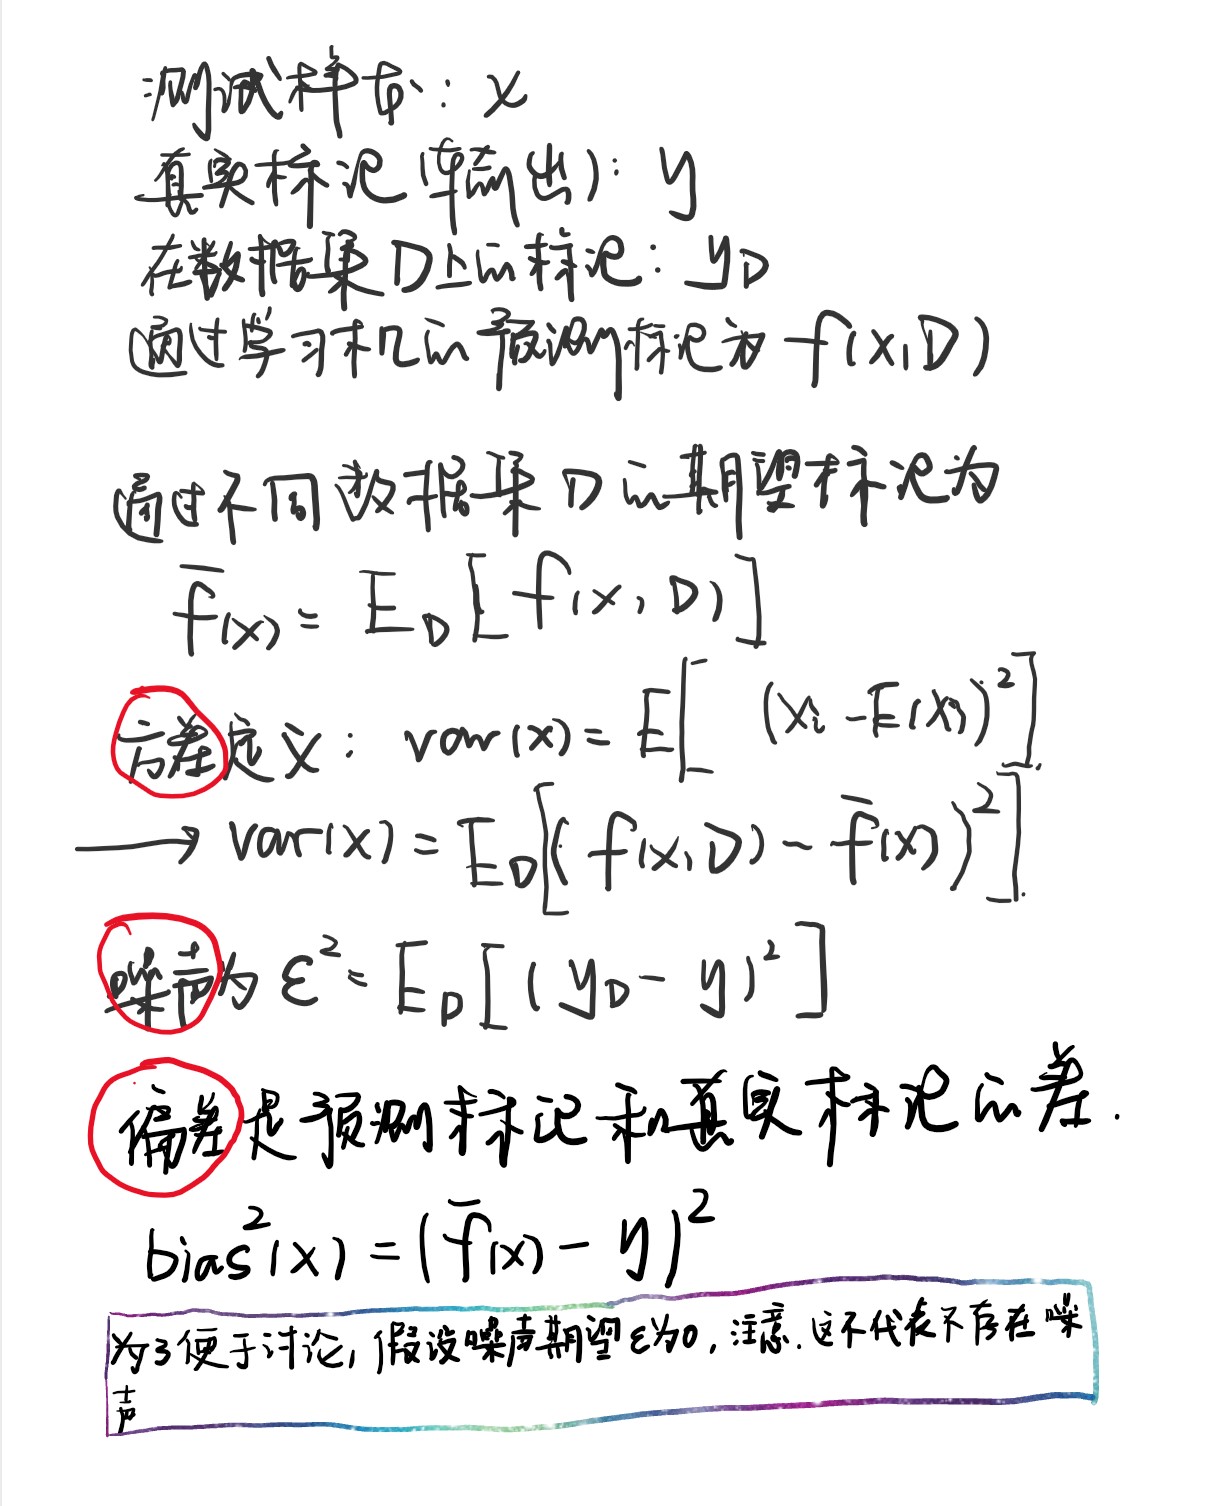 测试样本: x
真实标记(输出): y
在数据集D上的标记: y_D
通过学习机的预测标记为 f(x,D)
通过不同数据集D的期望标记为
f̄(x) = E_D[f(x,D)]
方差定义: var(x) = E[(x_i - E(x))²].
→ var(x) = E_D[(f(x,D) - f̄(x))²].
噪声为 ε² = E_D[(y_D - y)²]
偏差是预测标记和真实标记的差.
bias²(x) = (f̄(x) - y)²
为了便于讨论, 假设噪声期望ε为0, 注意.这不代表不存在噪
声